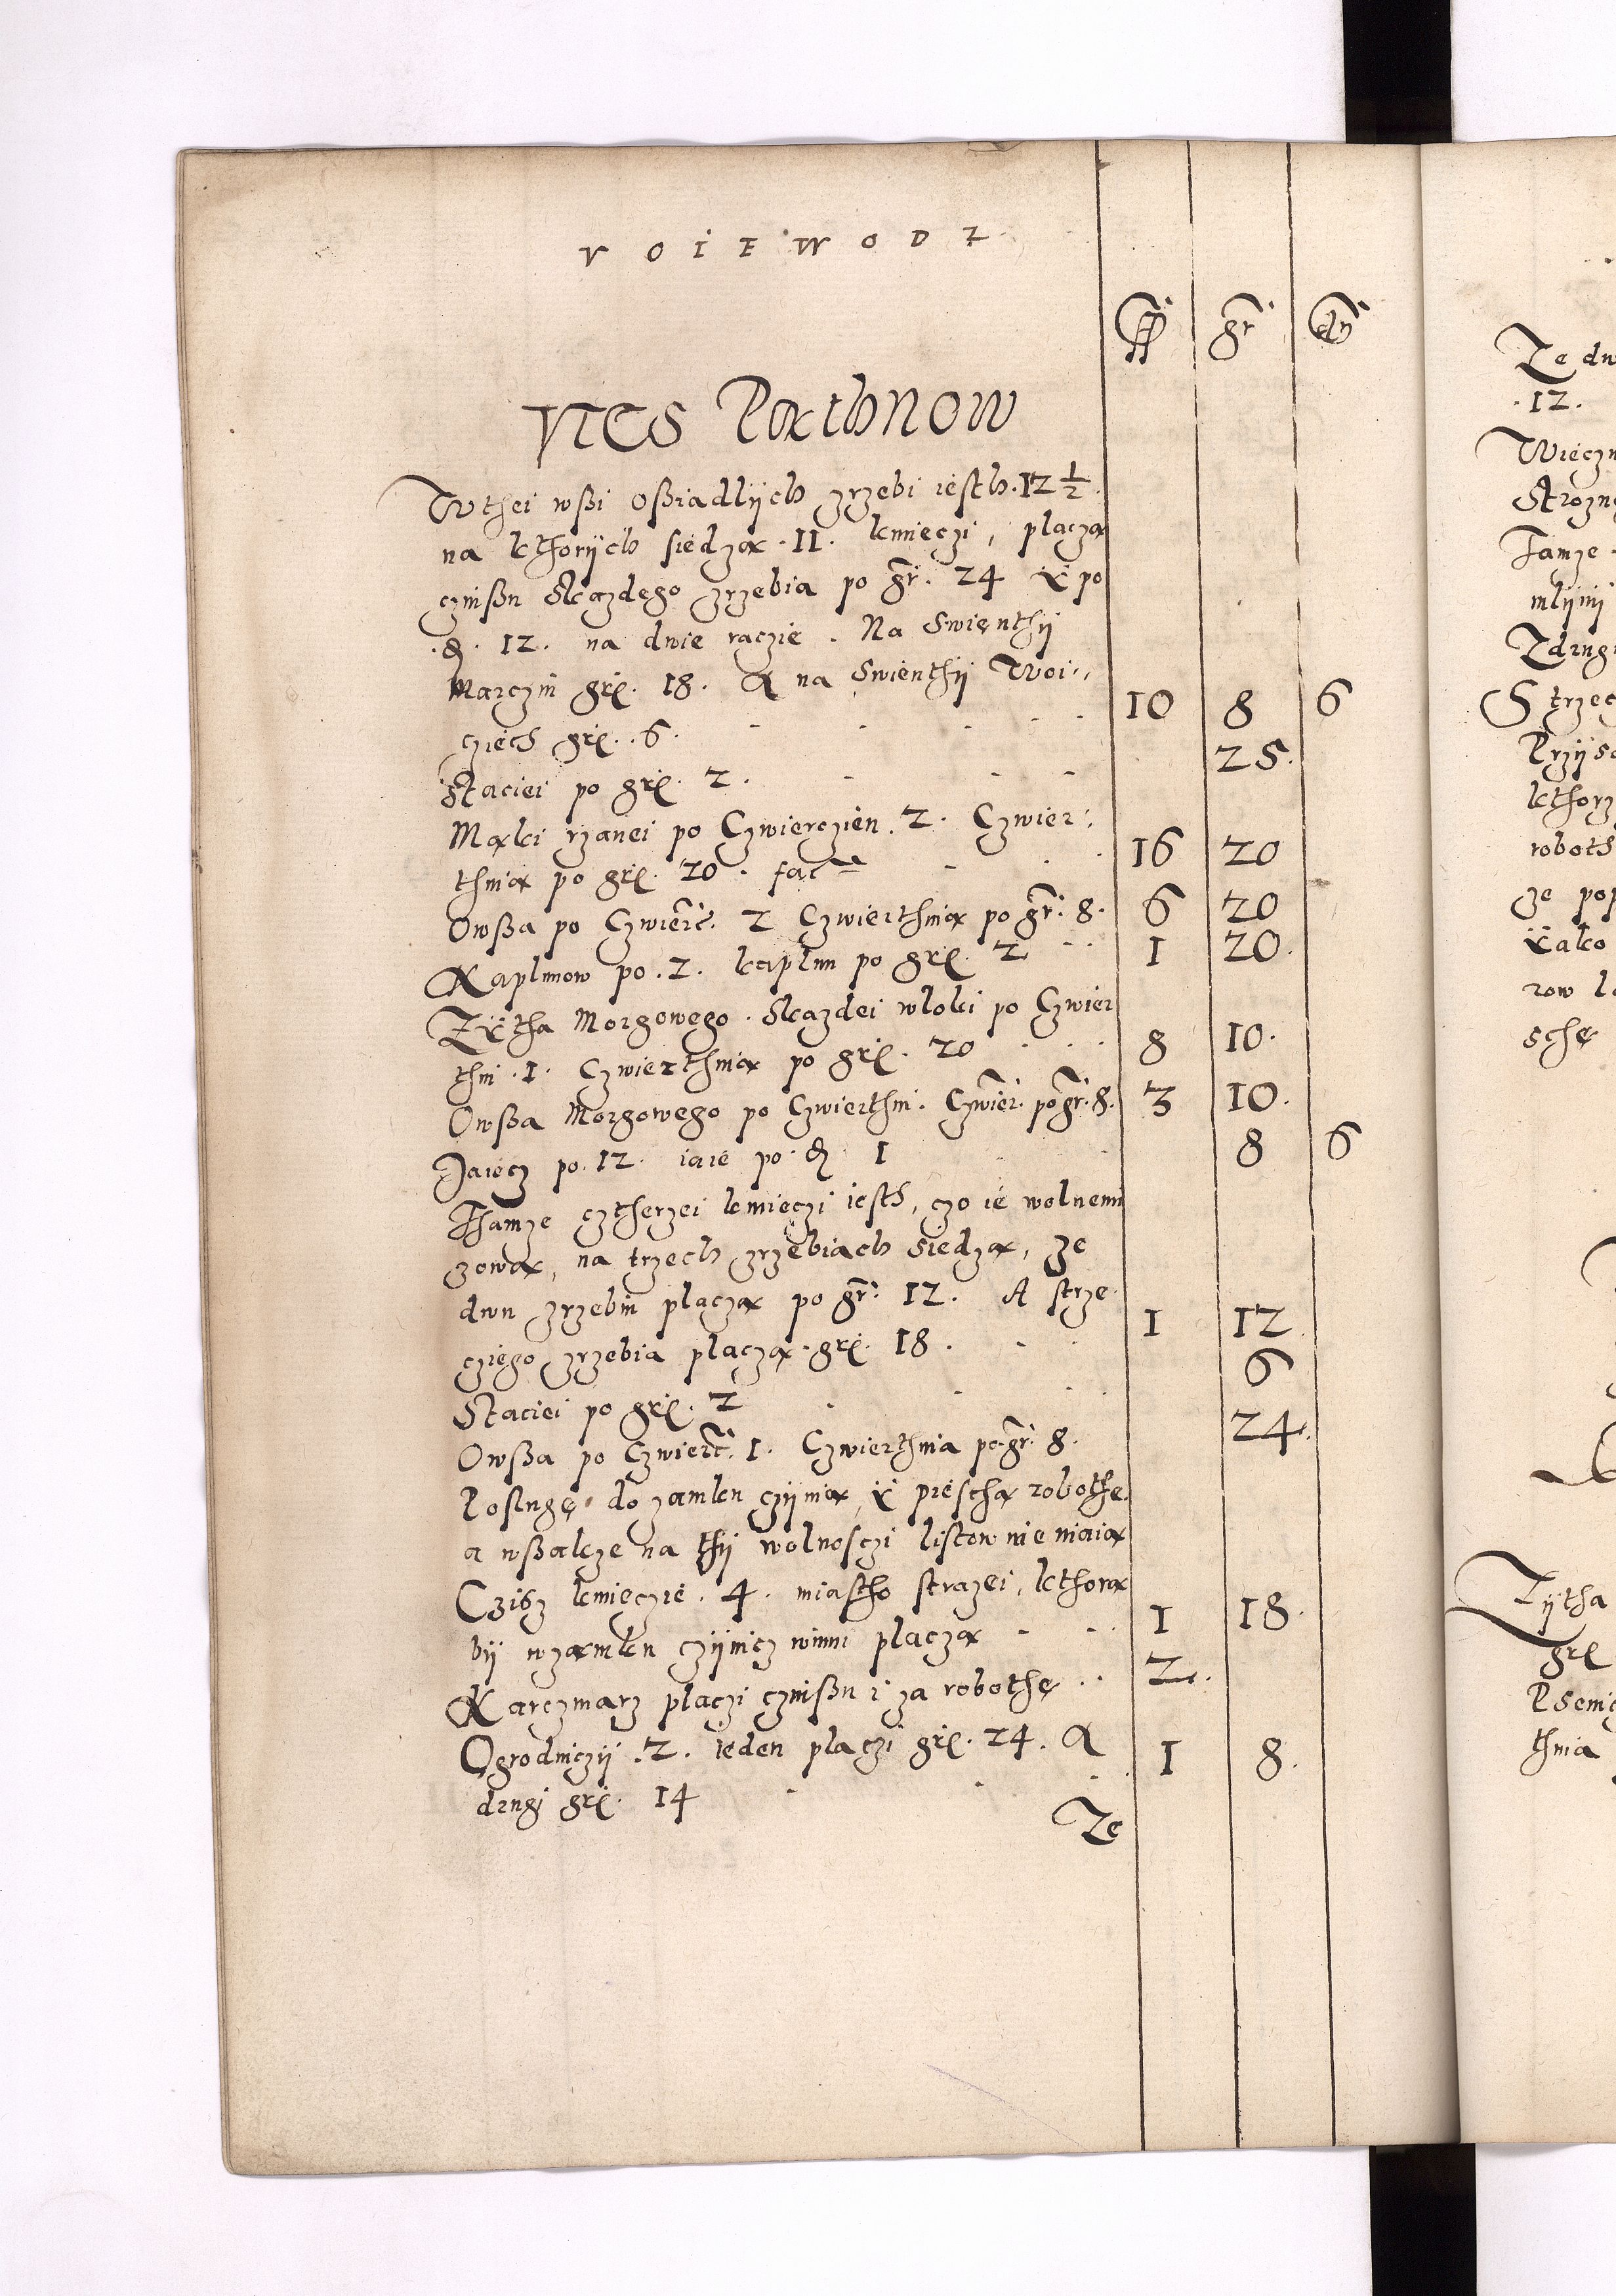 VOIEWODZ
fl gr dn
VIES Pąthnow
W thei wßi oßiadlÿch zrzebi iesth. 12 1/2.
na kthorÿch siedzą .11. kmieczi, placzą
czinßu Skazdego zrzebia po gr. 24 Y po
.d. 12. na dwie raczie. Na Swienthÿ
Marczin grͦ. 18. A na Swienthÿ Woi,,
cziech grͦ. 6. 10 8 6
Staciei po grͦ. 2. 25.
Mąki rzanei po Czwierczien. 2. Czwier:
thnia po grͦ. 20. fac 16 20
Owßa po Czwierc. 2 Czwierthnia po gr. 8. 6 20
Kaplunow po .2. kaplun po grͦ. 2 1 20.
Zÿtha Morgowego. Skazdei wloki po Czwier
thni .1. Czwierthnia po grͦ. 20 8 10.
Owßa Morgowego po Czwierthni. Czwier. po gr. 8. 3 10.
Jaiecz po. 12. iaie po. d 1 8 6
Thamze cztherzei kmieczi iesth, czo ie wolnemi
zową, na trzech zrzebiach siedzą, ze
dwu zrzebiu placzą po gr. 12. A strze
cziego zrzebia placzą. grͦ. 18. 1 12
Staciei po grͦ. 2 6
Owßa po Czwierc. 1. Czwierthnia po gr. 8. 24.
Poslugę do zamku czÿnią, Y pieschą robothę.
a wßakze na thÿ wolnosczi listow nie maią
Czisz kmieczie. 4. miastho strazei, kthorą
bÿ wzamku czÿnicz winni placzą 1 18.
Karczmarz placzi czinßu i za robothę 2.
Ogrodniczÿ .2. ieden placzi grͦ. 24. A
drugi grͦ. 14 1 8.
Ze
Ze dw
.12.
Wieczn
Strozn
Tamze
mlÿni
Zdrug
Strzec
Przÿsc
kthorz
roboth
ze pop
Yako
row
schę
Zÿtha
grͦ
Pseni
thnia